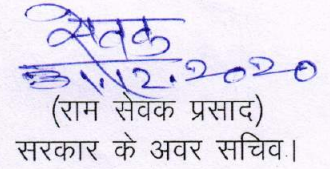 सेवक
31.12.2020
(राम सेवक प्रसाद)
सरकार के अवर सचिव।